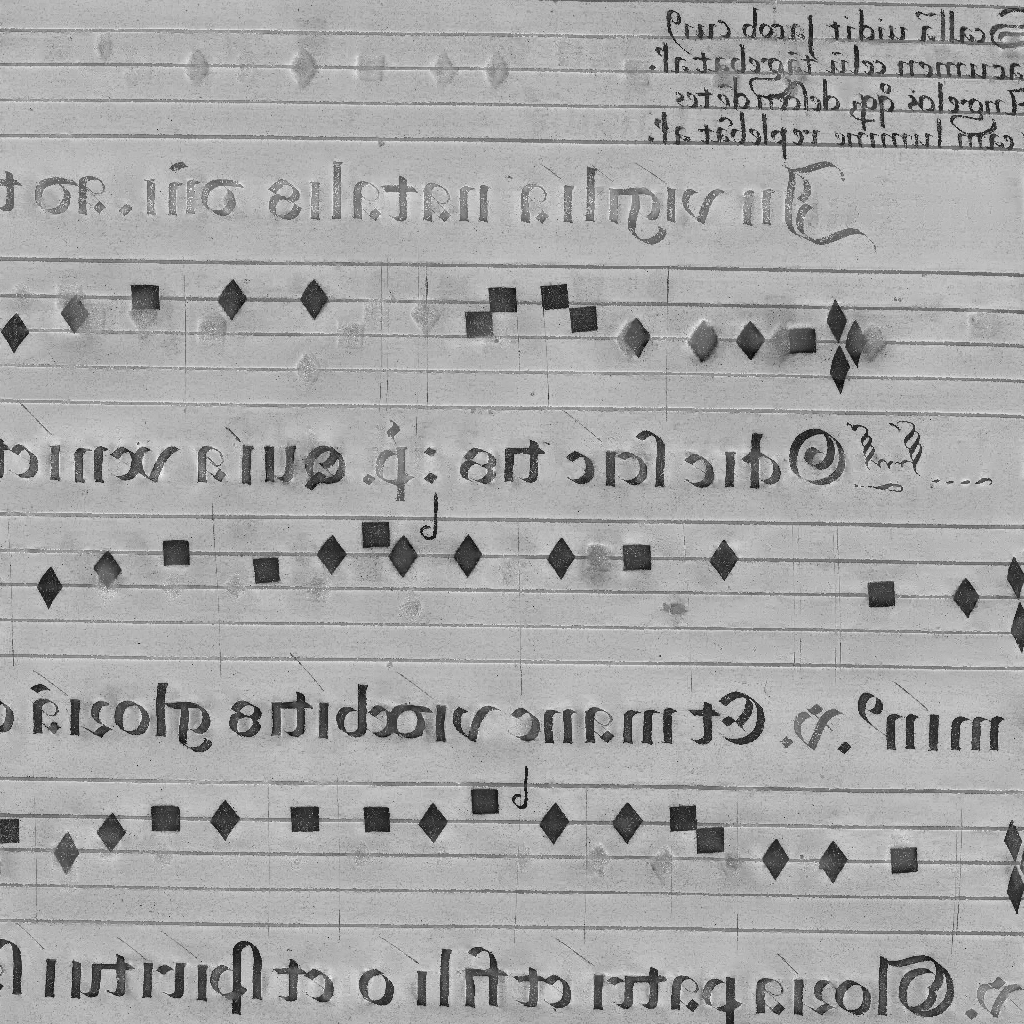 Scallā uidit Jacob cuiꝰ
acumen celū tāgebat. al'.
Angelos qͦqꝫ descendētes
eam lumine replebāt. al'.
In vigilia natalis dñi. ad t
Odie scie tis : p̄. quia veniet
minꝰ. v. Et mane videbitis gloriā
v. Gloria patri et fili o et spiritui s